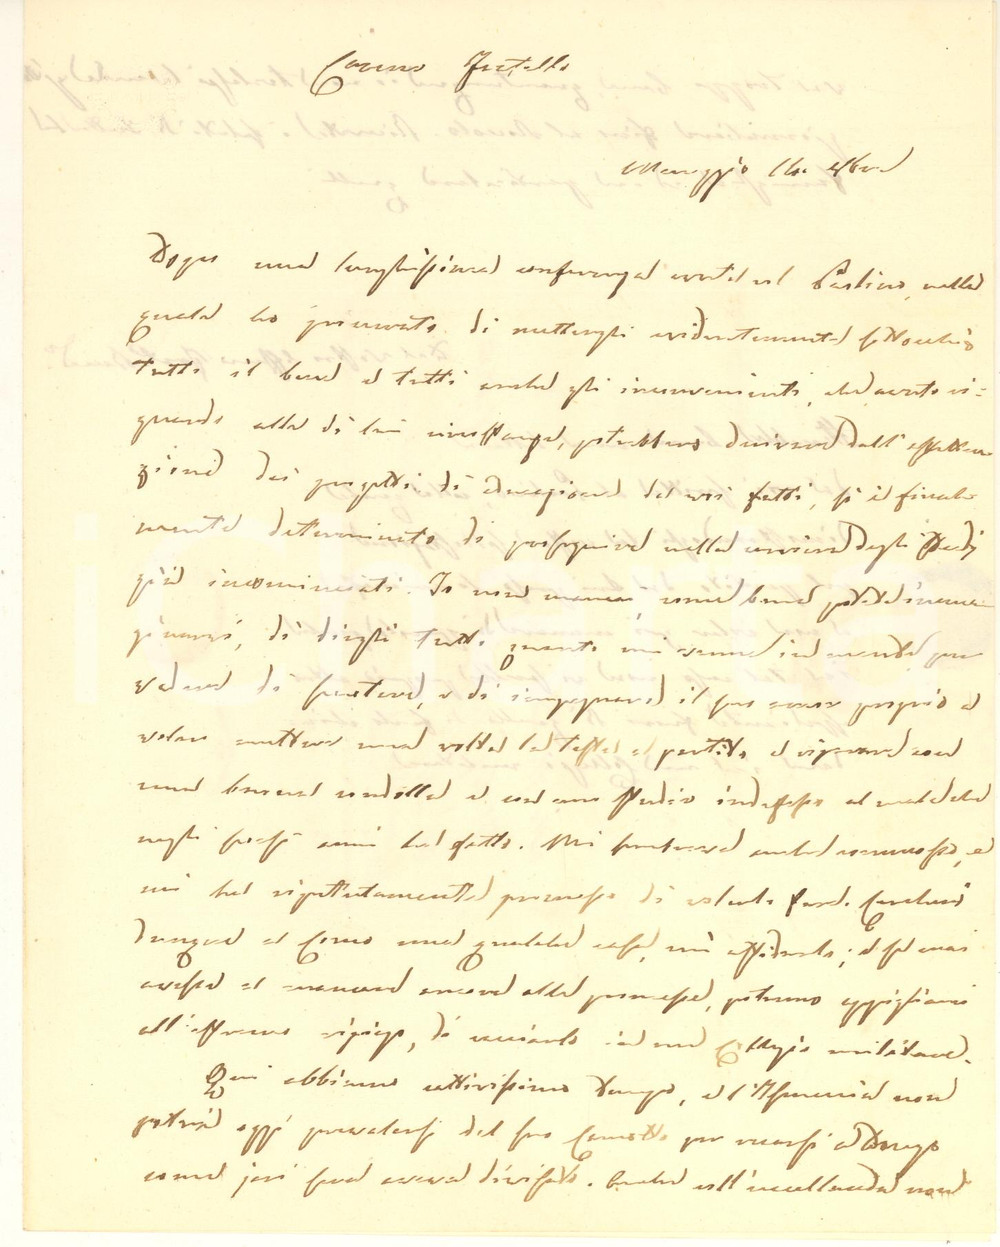 Carino Fratello
Menaggio 16. 8bre
Dopo una lunghissima conferenza avuta col Paolino, nella
quale ho procurato di mettergli evidentemente sott'occhio
tutto il bene e tutti anche gli inconvenienti, che avuto ri=
guardo alle di lui circostanze, potrebbero derivare dall'effettua
zione dei progetti di educazione da voi fatti, si è final
mente determinato di proseguire nella carriera degli studj
già incominciati. Io non mancai, come bene potete imma
ginarvi, di dirgli tutto quanto mi venne in mente per
vedere di scuotere, e di impegnare il suo amor proprio a
voler mettere una volta la testa a partito, e riparare con
una buona condotta e con uno studio indefesso al male che
negli scorsi anni ha fatto. Mi sembrava anche commosso, e
mi ha ripetutamente promesso di volerlo fare. Cercherei
dunque a Como una qualche casa, cui affidarlo; e se mai
avesse a mancare ancora alle promesse, potremo appigliarci
all'estremo ripiego, di cacciarlo in un Collegio militare.
Qui abbiamo cattivissimo tempo, e l' non
potrà oggi prevalersi del suo per recarsi a Dongo
come jeri aveva divisato. Anche all'uccellanda non